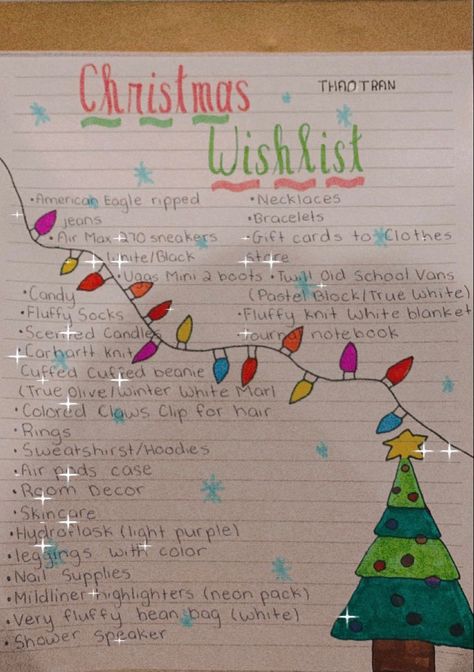 Christmas
THAO TRAN
Wishlist
•American Eagle ripped
jeans
•Air Max 270 sneakers
White/Black
•Uggs Mini 2 boots
•Candy
•Fluffy Socks
•Scented Candles
•Carhartt Knit
Cuffed Cuffed beanie
(True Olive/Winter White Marl
•Colored Claws Clip for hair
•Rings
•Sweatshirst/Hoodies
•Air pods case
•Room Decor
•Skincare
•Hydroflask (light purple)
•leggings with color
•Nail Supplies
•Mildliner highlighters (neon pack)
•Very fluffy bean bag (white)
•Shower speaker
•Necklaces
•Bracelets
•Gift cards to Clothes
store
•Twill Old School Vans
(Pastel Block/True White)
•Fluffy Knit White blanket
Journal notebook